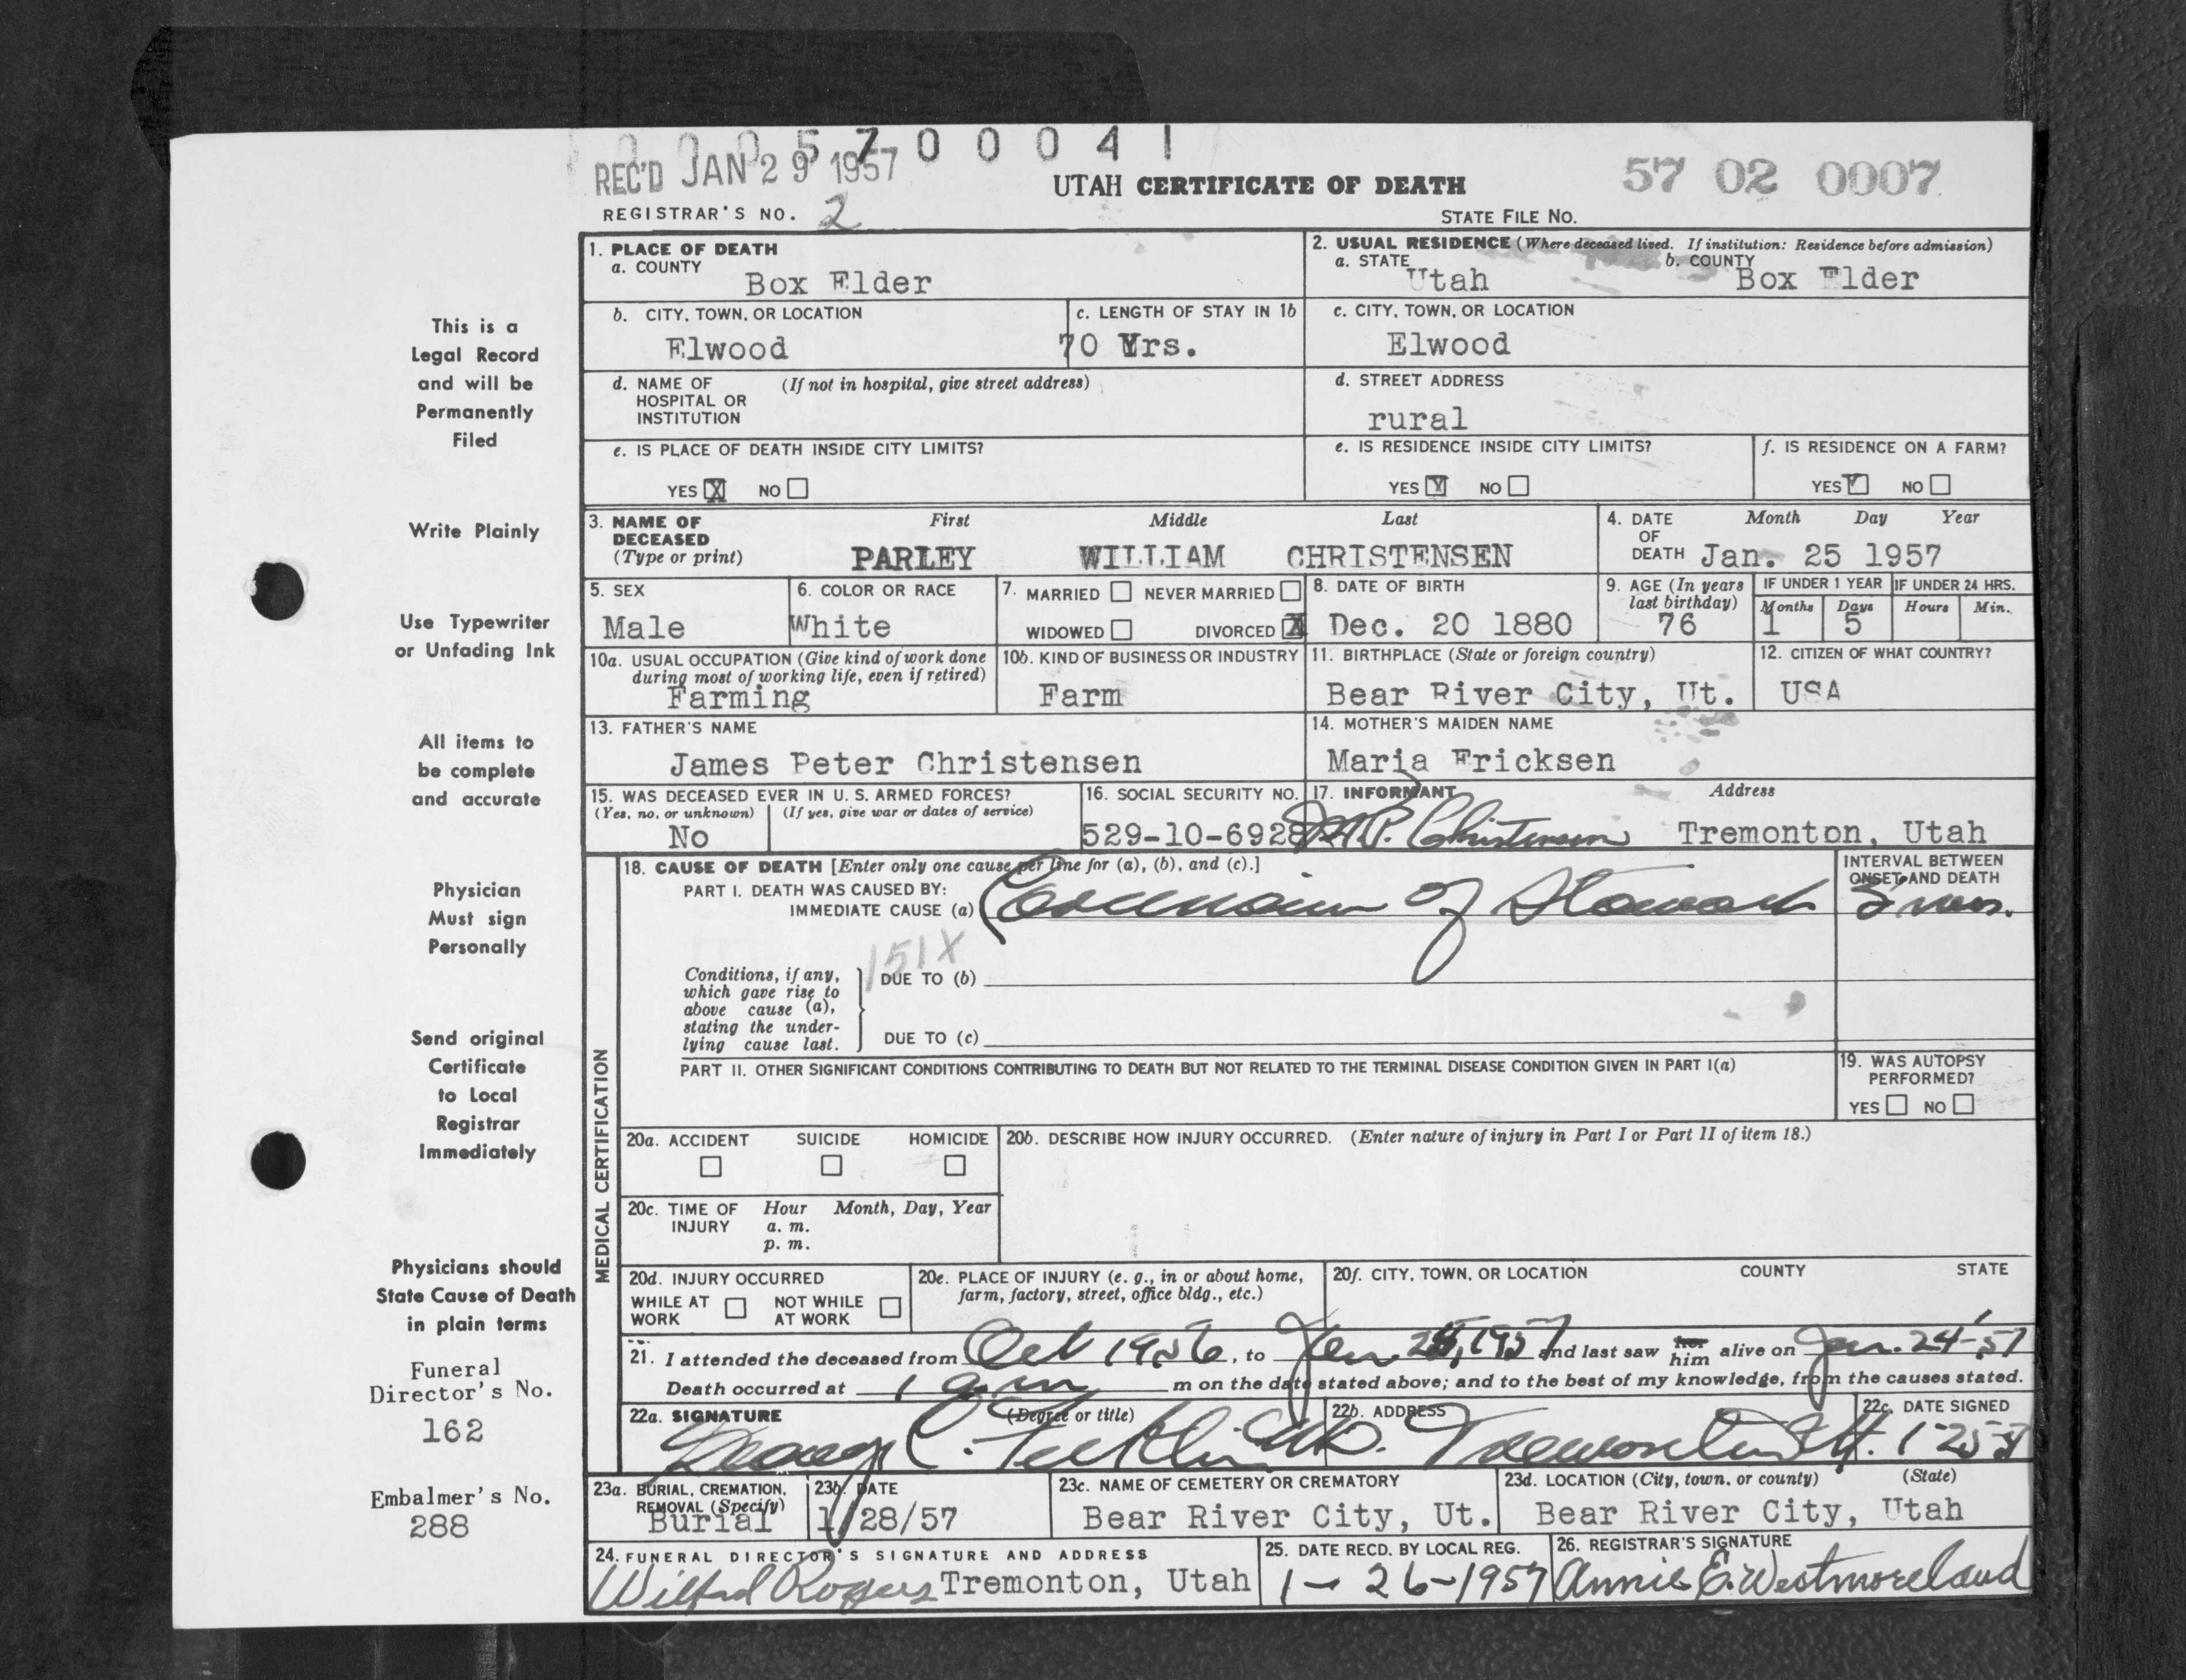 0 0 0 5 7 0 0 0 4 1
REC'D JAN 29 1957
UTAH CERTIFICATE OF DEATH
57 02 0007
REGISTRAR'S NO. 2
STATE FILE NO.
1. PLACE OF DEATH
a. COUNTY
Box Elder
2. USUAL RESIDENCE (Where deceased lived. If institution: Residence before admission)
a. STATE
Utah
b. COUNTY
Box Elder
b. CITY, TOWN, OR LOCATION
Elwood
c. LENGTH OF STAY IN 1b
70 Yrs.
c. CITY, TOWN, OR LOCATION
Elwood
d. NAME OF (If not in hospital, give street address)
HOSPITAL OR
INSTITUTION
d. STREET ADDRESS
rural
e. IS PLACE OF DEATH INSIDE CITY LIMITS?
YES X NO
e. IS RESIDENCE INSIDE CITY LIMITS?
YES Y NO
f. IS RESIDENCE ON A FARM?
YES Y NO
3. NAME OF
DECEASED
(Type or print)
First Middle Last
PARLEY WILLIAM CHRISTENSEN
4. DATE
OF
DEATH
Month Day Year
Jan. 25 1957
5. SEX
Male
6. COLOR OR RACE
White
7. MARRIED NEVER MARRIED
WIDOWED DIVORCED X
8. DATE OF BIRTH
Dec. 20 1880
9. AGE (In years
last birthday)
76
IF UNDER 1 YEAR
Months Days
1 5
IF UNDER 24 HRS.
Hours Min.
10a. USUAL OCCUPATION (Give kind of work done
during most of working life, even if retired)
Farming
10b. KIND OF BUSINESS OR INDUSTRY
Farm
11. BIRTHPLACE (State or foreign country)
Bear River City, Ut.
12. CITIZEN OF WHAT COUNTRY?
USA
13. FATHER'S NAME
James Peter Christensen
14. MOTHER'S MAIDEN NAME
Maria Ericksen
15. WAS DECEASED EVER IN U. S. ARMED FORCES?
(Yes, no, or unknown) (If yes, give war or dates of service)
No
16. SOCIAL SECURITY NO.
529-10-6928
17. INFORMANT Address
P. Christensen Tremonton, Utah
MEDICAL CERTIFICATION
18. CAUSE OF DEATH [Enter only one cause per line for (a), (b), and (c).]
PART I. DEATH WAS CAUSED BY:
IMMEDIATE CAUSE (a) Carcinoma of Stomach
INTERVAL BETWEEN
ONSET AND DEATH
151X
Conditions, if any,
which gave rise to
above cause (a),
stating the under-
lying cause last.
DUE TO (b)
DUE TO (c)
PART II. OTHER SIGNIFICANT CONDITIONS CONTRIBUTING TO DEATH BUT NOT RELATED TO THE TERMINAL DISEASE CONDITION GIVEN IN PART I(a)
19. WAS AUTOPSY
PERFORMED?
YES NO
20a. ACCIDENT SUICIDE HOMICIDE
20b. DESCRIBE HOW INJURY OCCURRED. (Enter nature of injury in Part I or Part II of item 18.)
20c. TIME OF Hour Month, Day, Year
INJURY a. m.
p. m.
20d. INJURY OCCURRED
WHILE AT NOT WHILE
WORK AT WORK
20e. PLACE OF INJURY (e. g., in or about home,
farm, factory, street, office bldg., etc.)
20f. CITY, TOWN, OR LOCATION COUNTY STATE
21. I attended the deceased from Oct 1956, to Jan 25, 1957 and last saw her him alive on Jan. 24-57
Death occurred at 1 a.m m on the date stated above; and to the best of my knowledge, from the causes stated.
22a. SIGNATURE (Degree or title)
M.D.
22b. ADDRESS
Tremonton Ut.
22c. DATE SIGNED
1-25-57
23a. BURIAL, CREMATION,
REMOVAL (Specify)
Burial
23b. DATE
1/28/57
23c. NAME OF CEMETERY OR CREMATORY
Bear River City, Ut.
23d. LOCATION (City, town, or county) (State)
Bear River City, Utah
24. FUNERAL DIRECTOR'S SIGNATURE AND ADDRESS
Wilford Rogers Tremonton, Utah
25. DATE RECD. BY LOCAL REG.
1-26-1957
26. REGISTRAR'S SIGNATURE
Annie E. Westmoreland
This is a
Legal Record
and will be
Permanently
Filed
Write Plainly
Use Typewriter
or Unfading Ink
All items to
be complete
and accurate
Physician
Must sign
Personally
Send original
Certificate
to Local
Registrar
Immediately
Physicians should
State Cause of Death
in plain terms
Funeral
Director's No.
162
Embalmer's No.
288